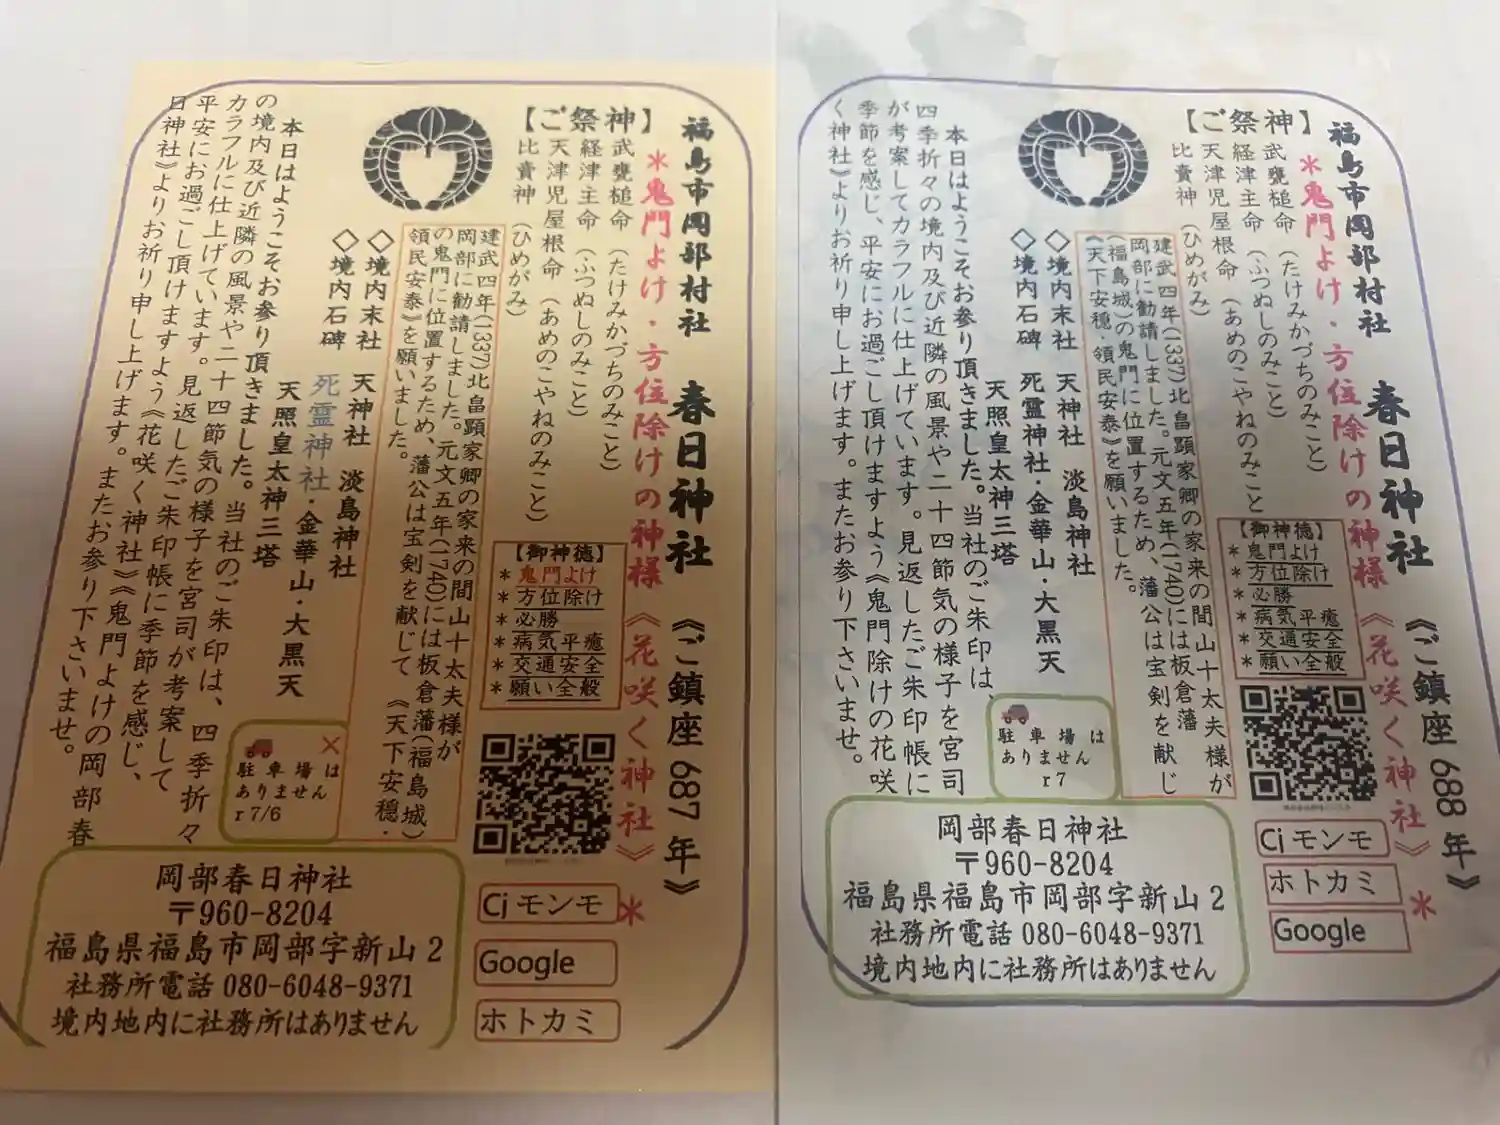 福島市岡部村社 春日神社 《ご鎮座 687 年》
*鬼門よけ・方位除けの神様 《花咲く神社》*
【ご祭神】
武甕槌命 (たけみかづちのみこと)
経津主命 (ふつぬしのみこと)
天津児屋根命 (あめのこやねのみこと)
比賣神 (ひめがみ)
【御神徳】
* 鬼門よけ
* 方位除け
* 必勝
* 病気平癒
* 交通安全
* 願い全般
建武四年(1337)北畠顕家卿の家来の間山十太夫様が
岡部に勧請しました。元文五年(1740)には板倉藩(福島城)
の鬼門に位置するため、藩公は宝剣を献じて 《天下安穏・
領民安泰》を願いました。
◇境内末社 天神社 淡島神社
◇境内石碑 死霊神社・金華山・大黒天
天照皇太神三塔
本日はようこそお参り頂きました。当社のご朱印は、四季折々
の境内及び近隣の風景や二十四節気の様子を宮司が考案して
カラフルに仕上げています。見返したご朱印帳に季節を感じ、
平安にお過ごし頂けますよう《花咲く神社》《鬼門よけの岡部春
日神社》よりお祈り申し上げます。またお参り下さいませ。
駐車場は
ありません
r 7/6
Cj モンモ
Google
ホトカミ
岡部春日神社
〒960-8204
福島県福島市岡部字新山 2
社務所電話 080-6048-9371
境内地内に社務所はありません
福島市岡部村社 春日神社 《ご鎮座 688 年》
*鬼門よけ・方位除けの神様 《花咲く神社》*
【ご祭神】
武甕槌命 (たけみかづちのみこと)
経津主命 (ふつぬしのみこと)
天津児屋根命 (あめのこやねのみこと
比賣神 (ひめがみ)
【御神徳】
* 鬼門よけ
* 方位除け
* 必勝
* 病気平癒
* 交通安全
* 願い全般
建武四年(1337)北畠顕家卿の家来の間山十太夫様が
岡部に勧請しました。元文五年(1740)には板倉藩
(福島城)の鬼門に位置するため、藩公は宝剣を献じ
《天下安穏・領民安泰》を願いました。
◇境内末社 天神社 淡島神社
◇境内石碑 死霊神社・金華山・大黒天
天照皇太神三塔
本日はようこそお参り頂きました。当社のご朱印は、
四季折々の境内及び近隣の風景や二十四節気の様子を宮司
が考案してカラフルに仕上げています。見返したご朱印帳に
季節を感じ、平安にお過ごし頂けますよう《鬼門除けの花咲
く神社》よりお祈り申し上げます。またお参り下さいませ。
駐車場は
ありません
r 7
Cj モンモ
ホトカミ
Google
岡部春日神社
〒960-8204
福島県福島市岡部字新山 2
社務所電話 080-6048-9371
境内地内に社務所はありません